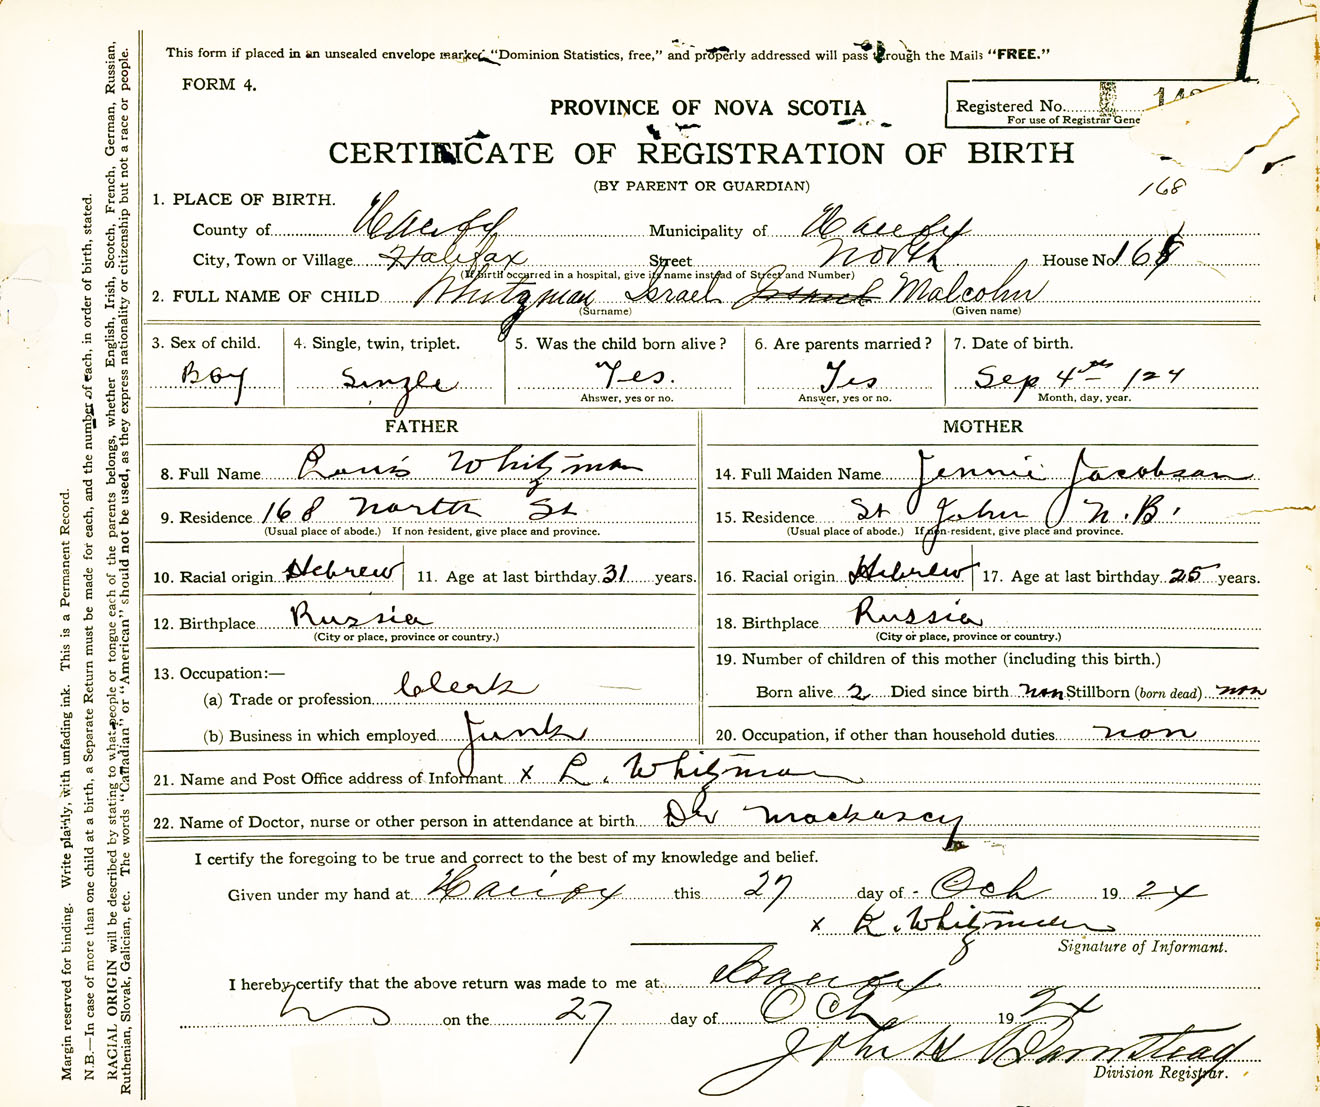 This form if placed in an unsealed envelope marked, "Dominion Statistics, free," and properly addressed will pass through the Mails "FREE."
FORM 4.
PROVINCE OF NOVA SCOTIA
Registered No.
For use of Registrar Gene
CERTIFICATE OF REGISTRATION OF BIRTH
(BY PARENT OR GUARDIAN)
168
1. PLACE OF BIRTH.
County of Halifax Municipality of Halifax
City, Town or Village Halifax Street North House No 168
(If birth occurred in a hospital, give its name instead of Street and Number)
2. FULL NAME OF CHILD Whitzman Israel Malcolm
(Surname) (Given name)
3. Sex of child. 4. Single, twin, triplet. 5. Was the child born alive? 6. Are parents married? 7. Date of birth.
Boy Single Yes. Yes Sep 4th 124
Answer, yes or no. Answer, yes or no. Month, day, year.
FATHER MOTHER
8. Full Name Louis Whitzman 14. Full Maiden Name Jennie Jacobson
9. Residence 168 North St 15. Residence St John N.B.
(Usual place of abode.) If non resident, give place and province. (Usual place of abode.) If non-resident, give place and province.
10. Racial origin Hebrew 11. Age at last birthday 31 years. 16. Racial origin Hebrew 17. Age at last birthday 25 years.
12. Birthplace Russia 18. Birthplace Russia
(City or place, province or country.) (City or place, province or country.)
13. Occupation:— 19. Number of children of this mother (including this birth.)
(a) Trade or profession Clerk Born alive 2 Died since birth non Stillborn (born dead) non
(b) Business in which employed Junk 20. Occupation, if other than household duties non
21. Name and Post Office address of Informant x L. Whitzman
22. Name of Doctor, nurse or other person in attendance at birth Dr
I certify the foregoing to be true and correct to the best of my knowledge and belief.
Given under my hand at Halifax this 27 day of Oct 1924
x L. Whitzman
Signature of Informant.
I hereby certify that the above return was made to me at Halifax
on the 27 day of Oct 1924
John H Barnstead
Division Registrar.
Margin reserved for binding. Write plainly, with unfading ink. This is a Permanent Record.
N.B.—In case of more than one child at a birth, a Separate Return must be made for each, and the number of each, in order of birth, stated.
RACIAL ORIGIN will be described by stating to what people or tongue each of the parents belongs, whether English, Irish, Scotch, French, German, Russian,
Ruthenian, Slovak, Galician, etc. The words "Canadian" or "American" should not be used, as they express nationality or citizenship but not a race or people.